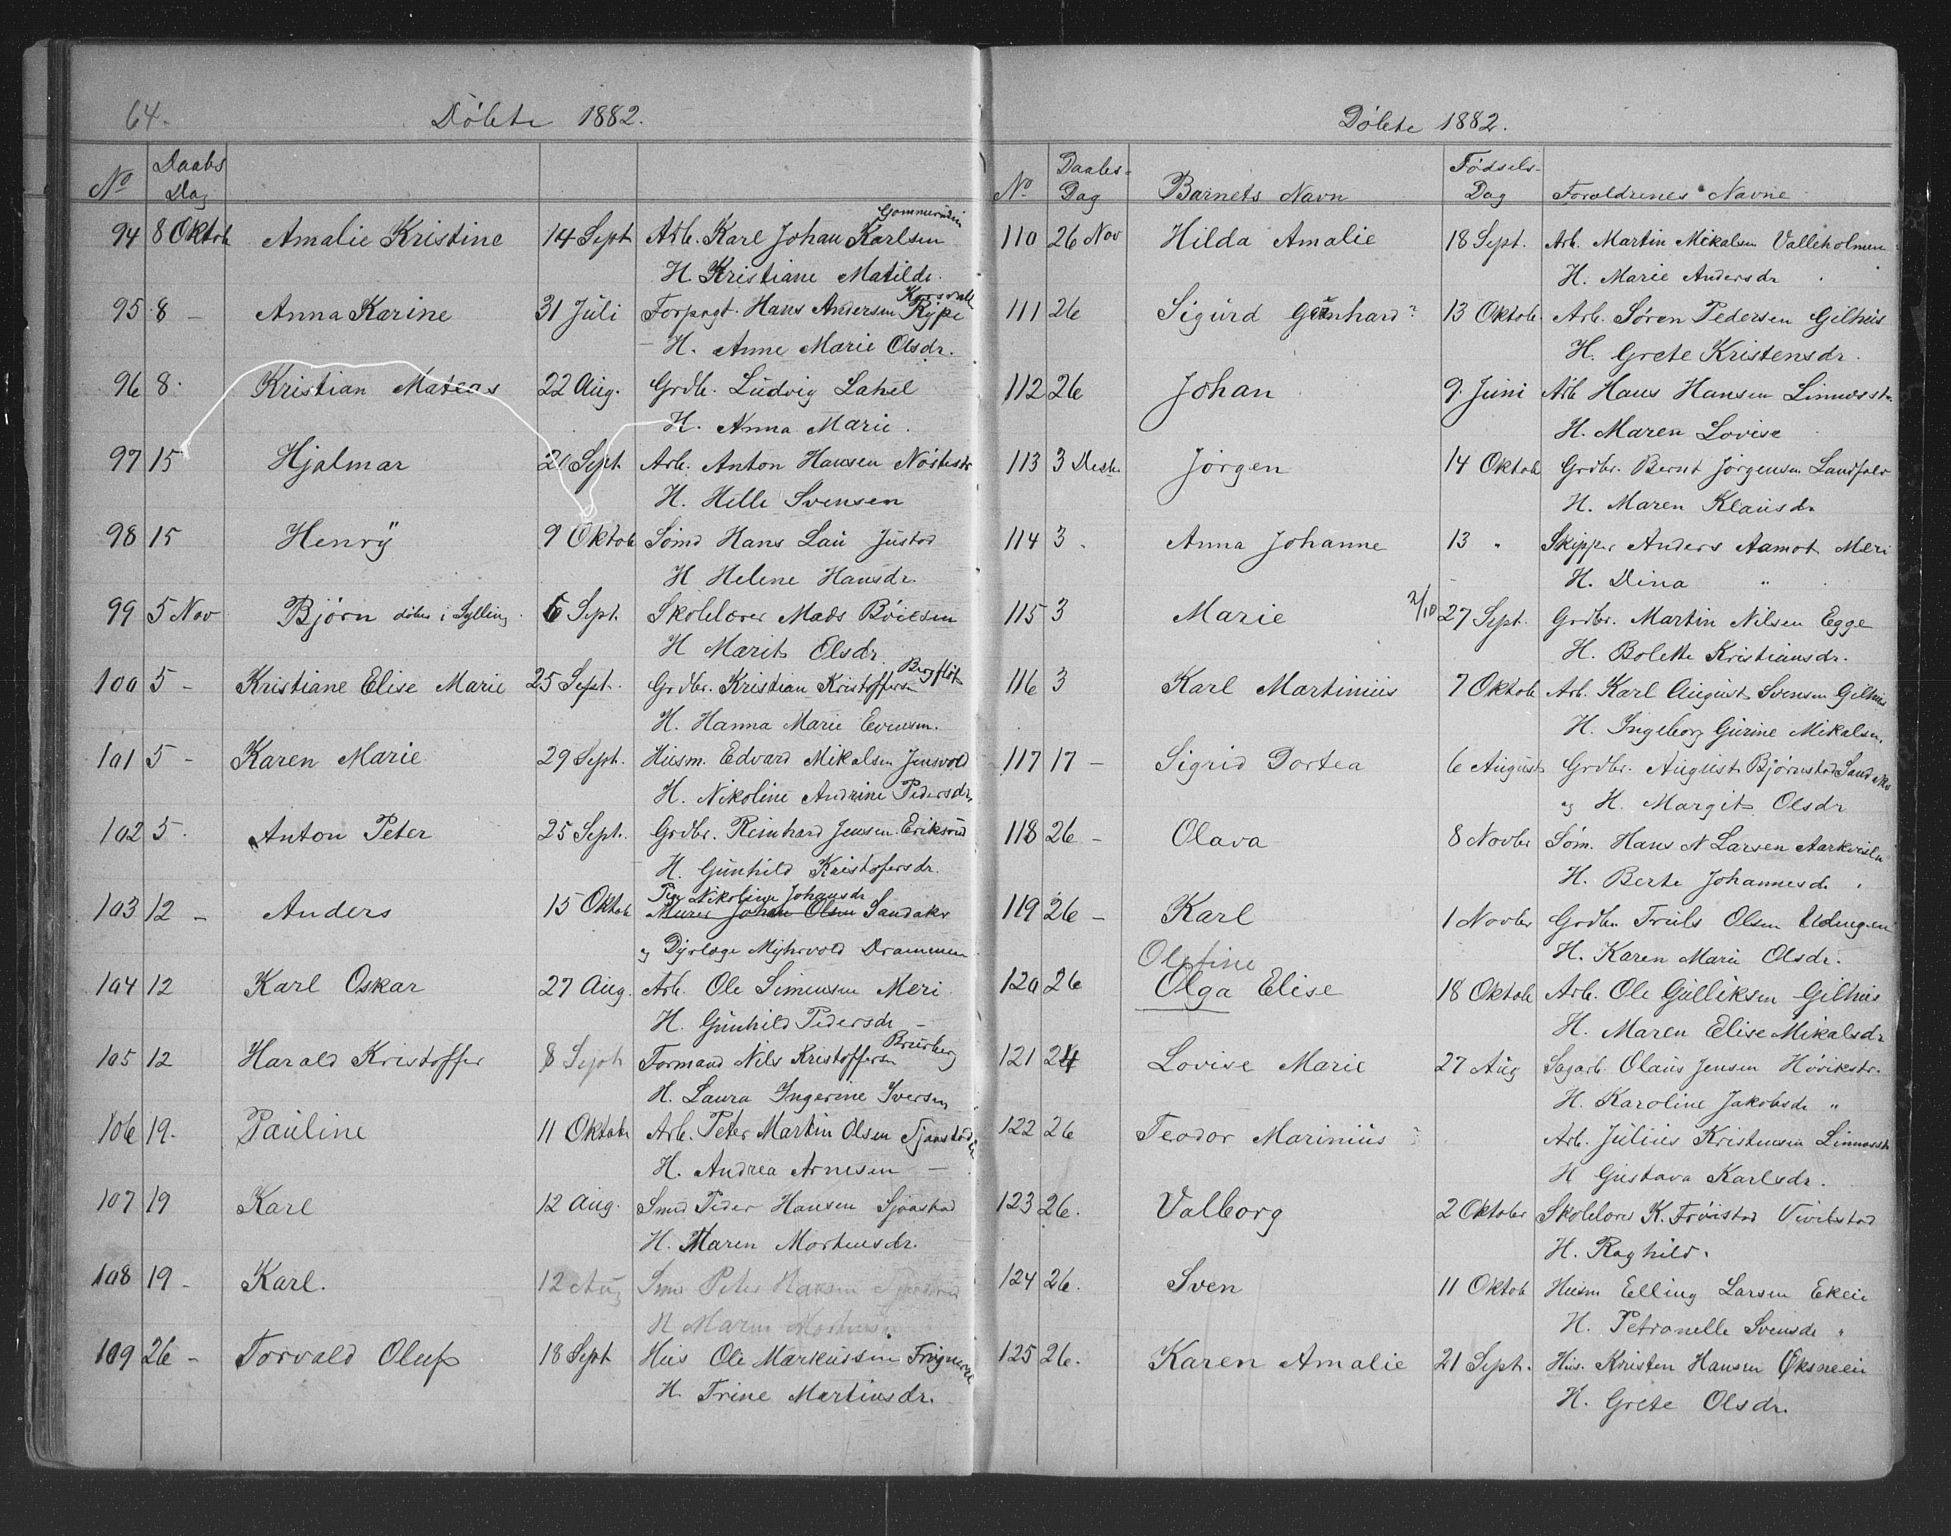 64.
Döbte 1882.
No Daabs Dag
94 8 Oktob Amalie Kristine 14 Sept Arb. Karl Johan Karlsen
H. Kristiane Matilde.
95 8 – Anna Karine 31 Juli Forpagt. Hans Andersen Rype
H. Anne Marie Olsdr.
96 8. Kristian Mateas 22 Aug. Grdb. Ludvig Lahel
H. Anna Marie.
97 15 Hjalmar 20 Sept. Arb. Anton Hansen Nöstestr
H. Helle Svensen
98 15 Henrÿ 9 Oktob Sömd Hans Lau Justad
H Helene Hansdr.
99 5 Nov Björn döbt i Sylling 6 Sept. Skolelærer Mads Böiesen
H Marit Elsdr.
100 5 – Kristiane Elise Marie 25 Sept. Grdbr. Kristian Kristoffersen Bergflöt
H. Hanna Marie Evensen.
101 5 – Karen Marie 29 Sept. Husm. Edvard Mikalsen Jensvold
H. Nikoline Andrine Pedersdr.
102 5. Anton Peter 25 Sept. Grdbr. Reinhard Jensen Eriksrud
H. Gunhild Kristofersdr.
103 12 – Anders 15 Oktob Pig Nikoline Johansdr
Murer Johan Olsen Sandaker
og Dyrlæge Myhrvold Drammen
104 12 Karl Oskar 27 Aug. Arb. Ole Simensen Meri
H. Gunhild Pedersdr –
105 12 Harald Kristoffer 8 Sept Formand Nils Kristoffersen Bruberg
H. Laura Ingerine Iversen
106 19. Pauline 11 Oktob Arb. Peter Martin Olsen
H. Andrea Arnesen –
107 19 Karl 12 Aug. Smed Peder Hansen Sjaastad
H. Maren Mortensdr.
108 19 – Karl. 12 Aug Smed Peter Hansen
H Maren
109 26 – Torvald Oluf 18 Sept Hus Ole Markussen
H. Trine Martinsdr.
Döbte 1882.
No Daabs-Dag Barnets Navn Födsels-Dag Forældrenes Navne
110 26 Nov Hilda Amalie 18 Sept. Arb. Martin Mikalsen Valleholmen
H. Marie Andersdr
111 26 Sigurd 13 Oktob. Arb. Sören Pedersen Gilhus
H. Grete Kristensdr.
112 26 Johan 9. Juni Arb Hans Hansen Linnesstr
H. Maren Lovise
113 3 Desb. Jörgen 14 Oktob Grdbr. Bernt Jörgensen Landfald
H. Maren Klausdr
114 3 . Anna Johanne 13 " Skipper Anders Aamot Meri
H. Dina "
115 3 Marie 2/10 27 Sept. Grdbr. Martin Nilsen Egge
H. Bolette Kristiansdr.
116 3 Karl Martinius 7 Oktob Arb. Karl August Svensen Gilhus
H. Ingeborg Gurine Mikalsen.
117 17 – Sigrid Dortea 6 August Grdbr. August Björnstad Sandaker
og H. Margit Olsdr
118 26 – Olava 8 Novbr Söm. Hans N Larsen Aarkvisla
H. Berte Johannesd.
119 26 – Karl 1 Novbr Grdbr. Truls Olsen Udengen
H. Karen Marie Olsdr.
Olefine
120 26 Olga Elise 18 Oktob Arb. Ole Gulliksen Gilhus
H. Maren Elise Mikalsdr
121 24 Lovise Marie 27 Aug Sagarb. Olaus Jensen Hövikstr.
H. Karoline Jakobsdr "
122 26 Teodor Marinius Arb. Julius Kristensen Linnesstr
H Gustava Karlsdr.
123 26. Valborg 2 Oktober Skolelærer K. Fröistad Vivelstad
H. Raghild.
124 26. Sven 11 Oktob Husm Elling Larsen Ekeie
H. Petronelle Svensdr "
125 26. Karen Amalie 21 Sept. Hus. Kristen Hansen Öksneeie
H. Grete Olsdr.